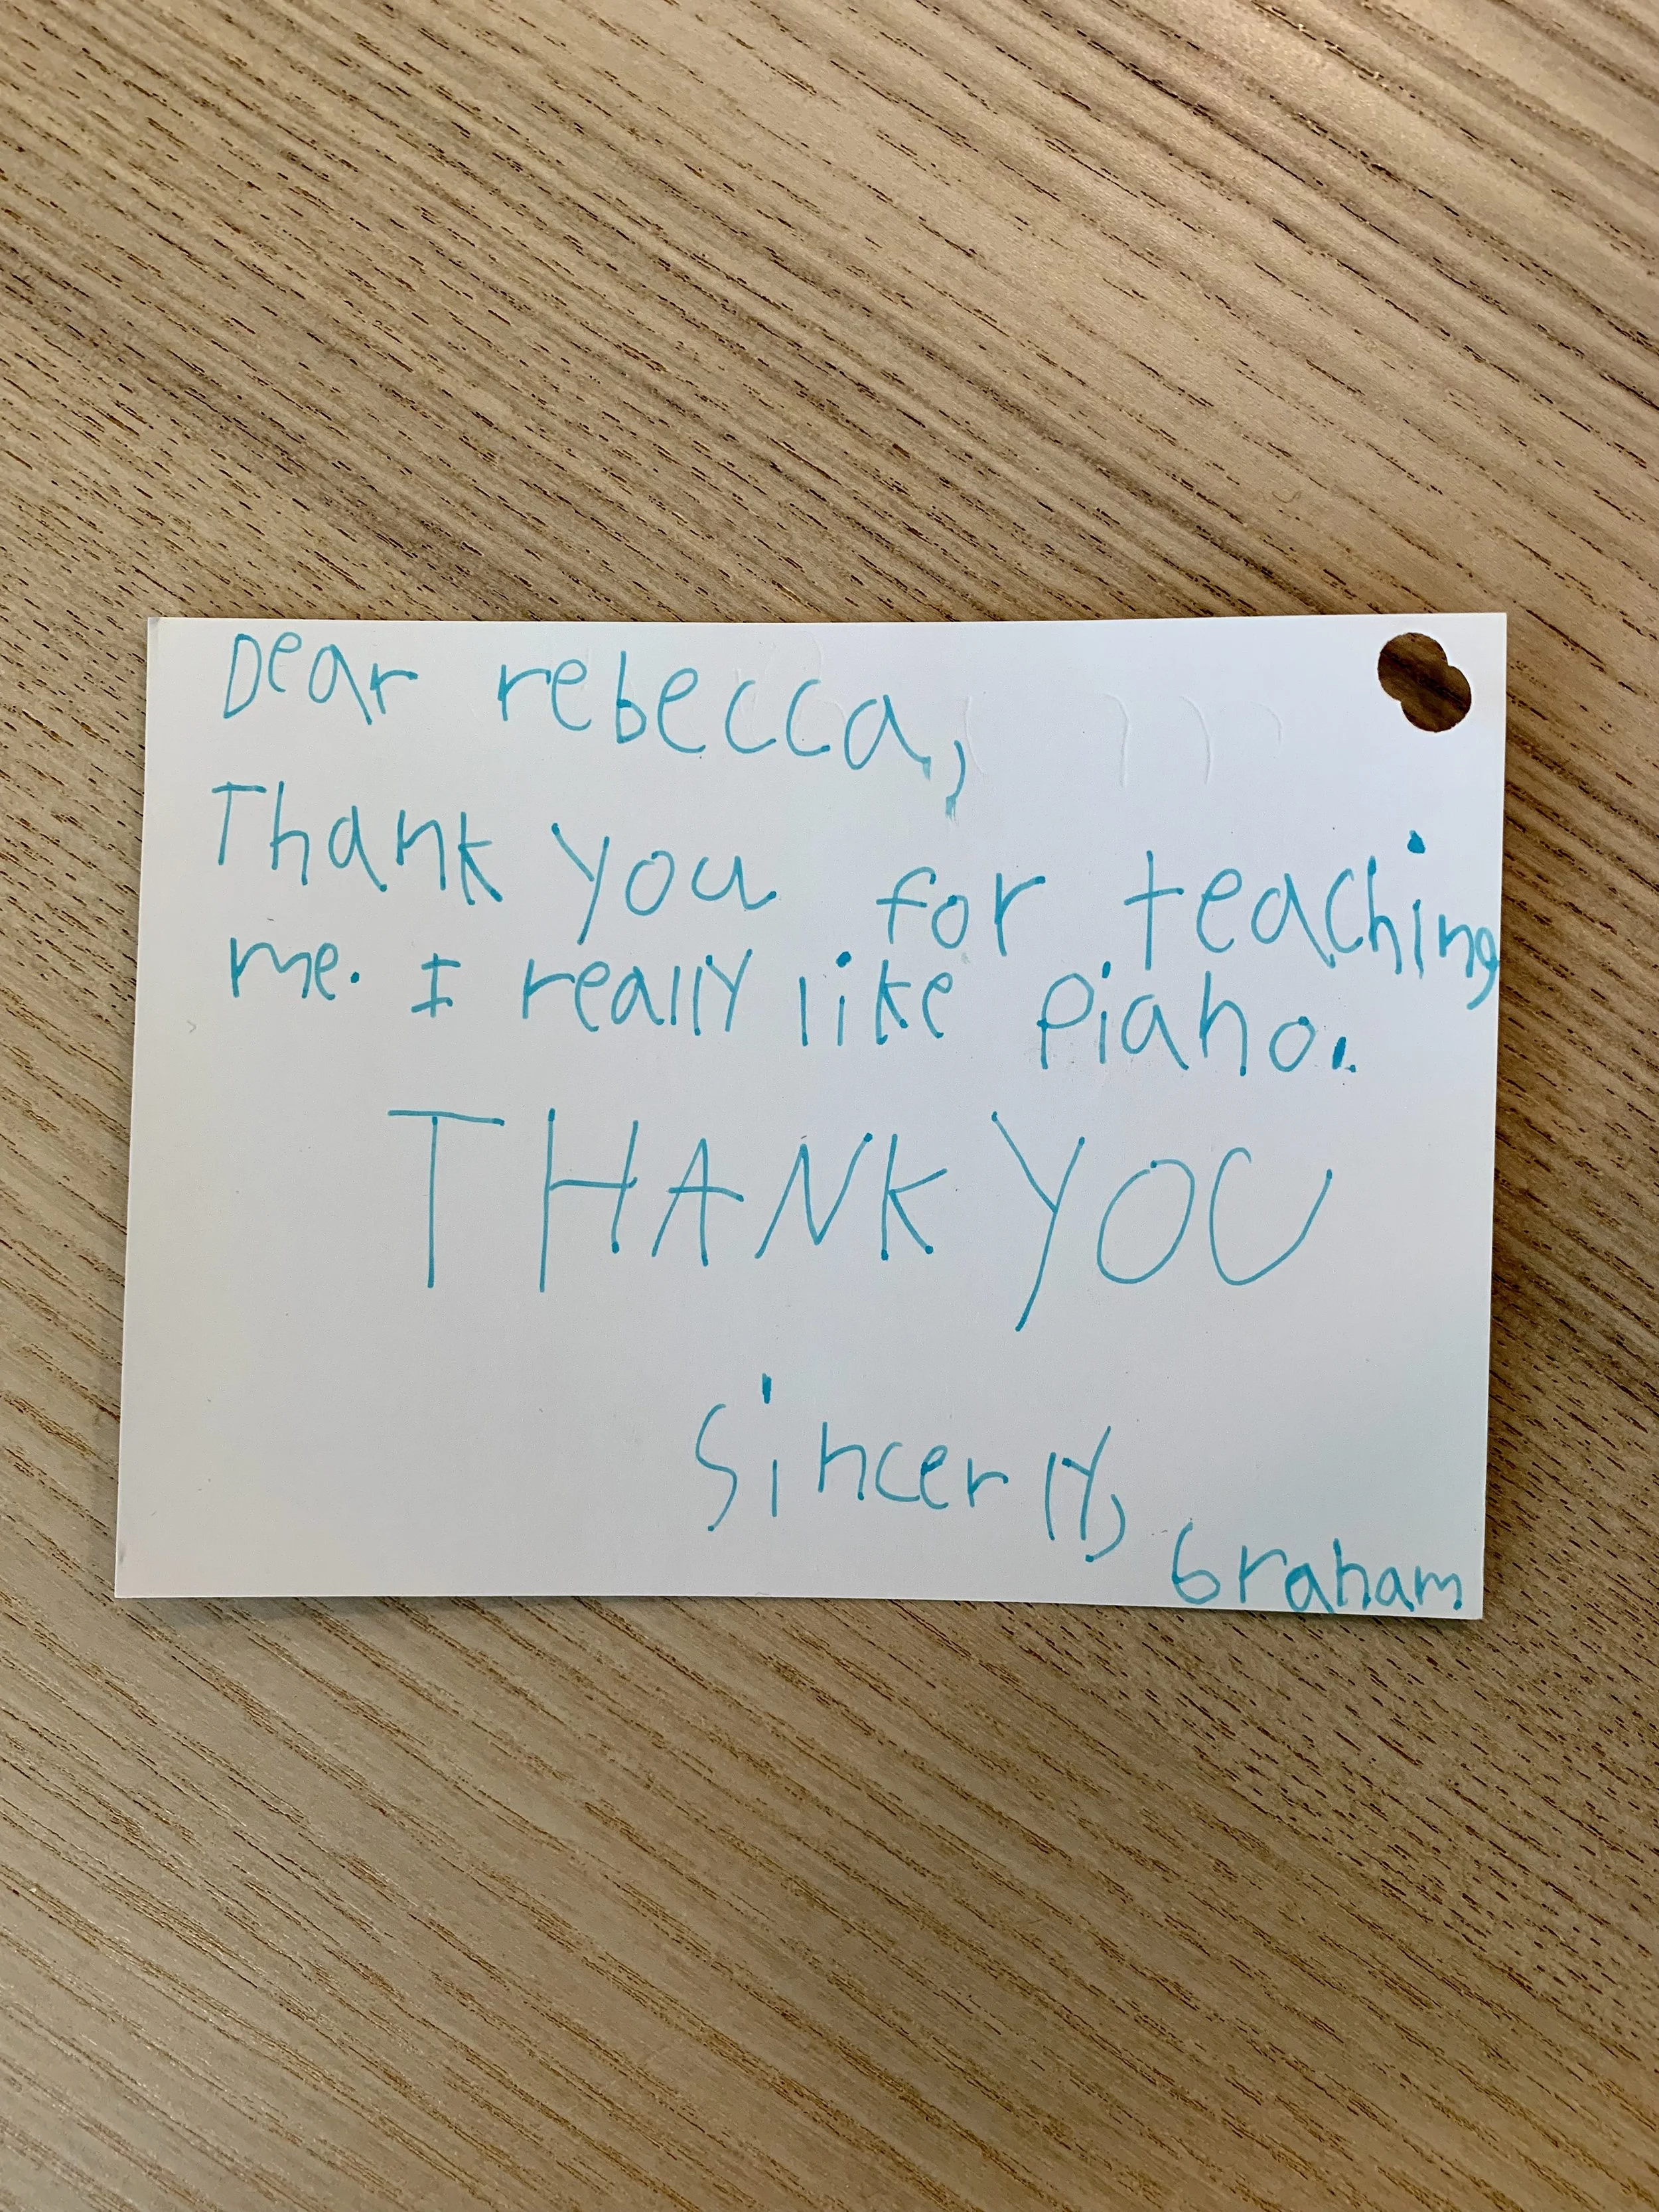 Dear rebecca,
Thank you for teaching
me. I really like Piano.
THANK YOU
Sincerly,
Graham